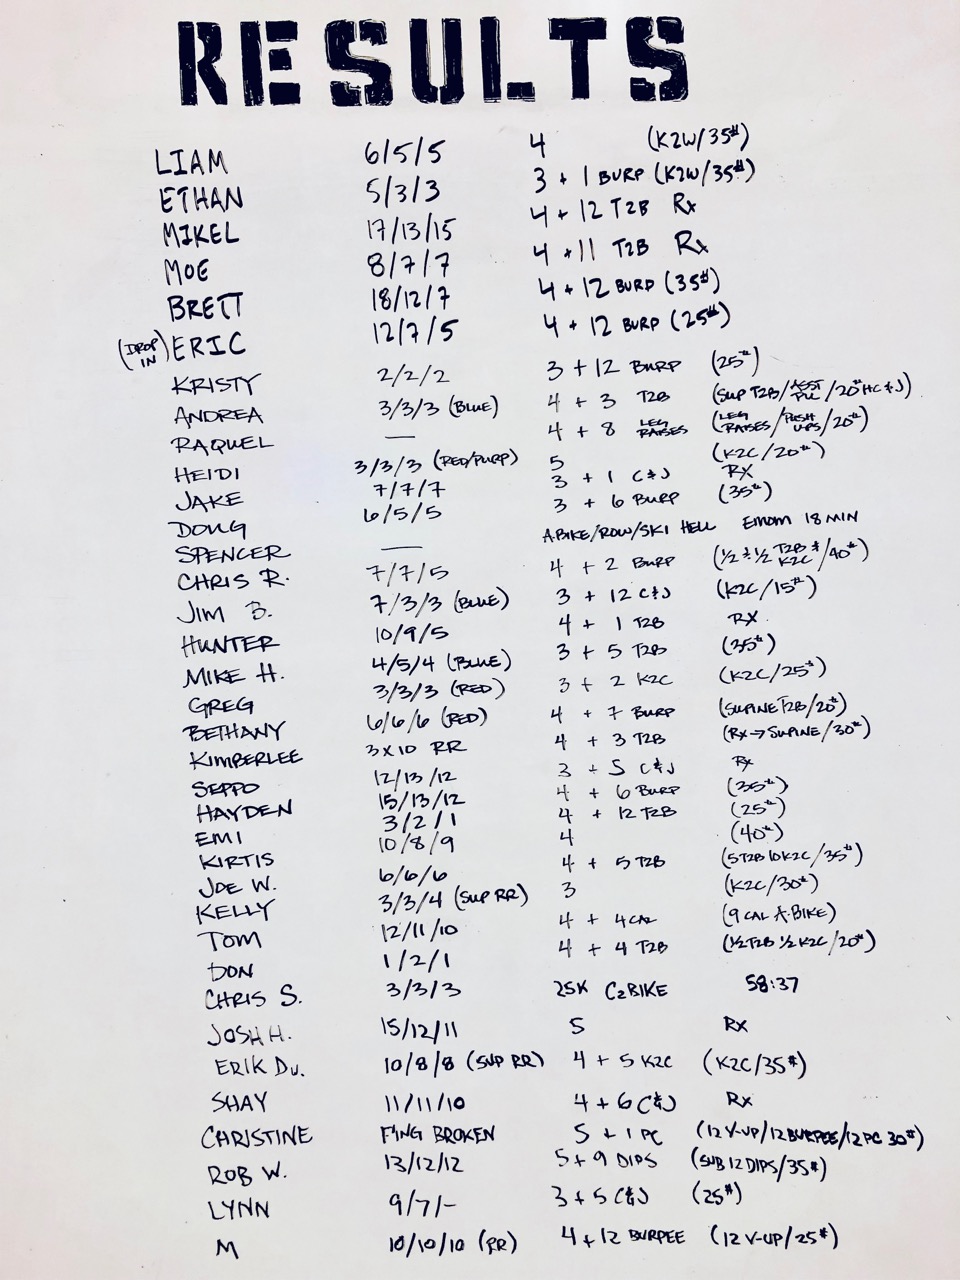 RESULTS
LIAM 6/5/5 4 (K2W/35#)
ETHAN 5/3/3 3 + 1 BURP (K2W/35#)
MIKEL 17/13/15 4 + 12 T2B Rx
MOE 8/7/7 4 + 11 T2B Rx
BRETT 18/12/7 4 + 12 BURP (35#)
(DROP IN) ERIC 12/7/5 4 + 12 BURP (25#)
KRISTY 2/2/2 3 + 12 BURP (25#)
ANDREA 3/3/3 (BLUE) 4 + 3 T2B (SUP T2B/ASST PU/20# HC&J)
RAQUEL — 4 + 8 LEG RAISES (LEG RAISES/PUSH UPS/20#)
HEIDI 3/3/3 (RED/PURP) 5 (K2C/20#)
JAKE 7/7/7 3 + 1 C&J RX
DOUG 6/5/5 3 + 6 BURP (35#)
SPENCER — A.BIKE/ROW/SKI HELL EMOM 18 MIN
CHRIS R. 7/7/5 4 + 2 BURP (1/2 & 1/2 T2B & K2C/40#)
JIM B. 7/3/3 (BLUE) 3 + 12 C&J (K2C/15#)
HUNTER 10/9/5 4 + 1 T2B RX
MIKE H. 4/5/4 (BLUE) 3 + 5 T2B (35#)
GREG 3/3/3 (RED) 3 + 2 K2C (K2C/25#)
BETHANY 6/6/6 (RED) 4 + 7 BURP (SUPINE T2B/20#)
KIMBERLEE 3x10 RR 4 + 3 T2B (RX→SUPINE/30#)
SEPPO 12/13/12 3 + 5 C&J Rx
HAYDEN 15/13/12 4 + 6 BURP (35#)
EMI 3/2/1 4 + 12 T2B (25#)
KIRTIS 10/8/9 4 (40#)
JOE W. 6/6/6 4 + 5 T2B (5T2B 10K2C/35#)
KELLY 3/3/4 (SUP RR) 3 (K2C/30#)
TOM 12/11/10 4 + 4 CAL (9 CAL A.BIKE)
DON 1/2/1 4 + 4 T2B (1/2 T2B 1/2 K2C/20#)
CHRIS S. 3/3/3 25K C2BIKE 58:37
JOSH H. 15/12/11 5 RX
ERIK DU. 10/8/8 (SUP RR) 4 + 5 K2C (K2C/35#)
SHAY 11/11/10 4 + 6 C&J RX
CHRISTINE F'ING BROKEN 5 + 1 PC (12 V-UP/12 BURPEE/12 PC 30#)
ROB W. 13/12/12 5 + 9 DIPS (SUB 12 DIPS/35#)
LYNN 9/7/- 3 + 5 C&J (25#)
M 10/10/10 (RR) 4 + 12 BURPEE (12 V-UP/25#)